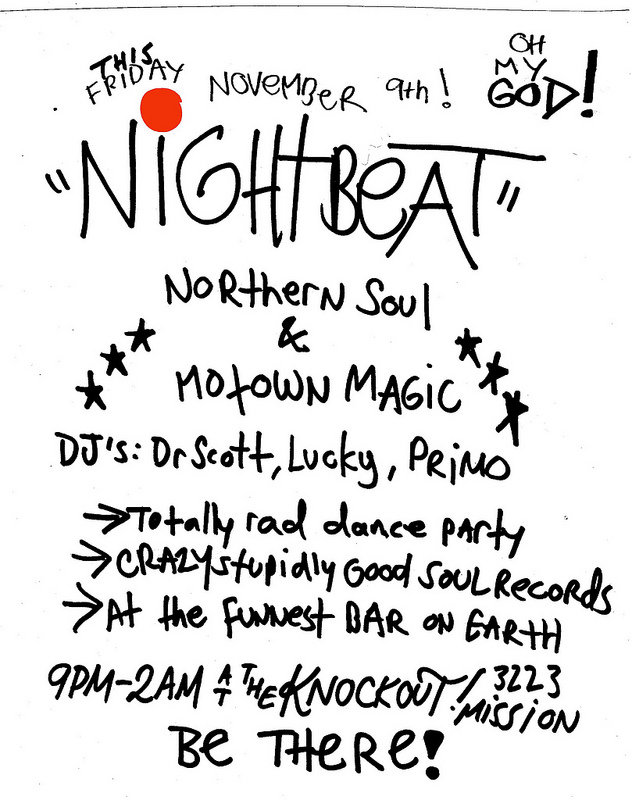 THIS FRIDAY NOVEMBER 9th! OH MY GOD!
"NiGHtBeAT"
NoRtherN Soul
&
MotowN MAGiC
DJ's: Dr Scott, Lucky, PRiMO
→Totally rad dance pARty
→CRAZY stupidly Good SOUL Records
→At the funnest BAR ON EARTH
9PM-2AM AT THE KNOCKOUT! 3223 MiSSiON
Be THeRe!